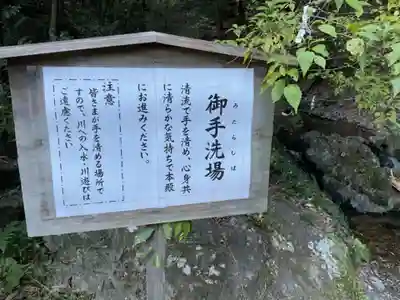 御手洗場
みたらしば
清流で手を清め、心身共
に清らかな気持ちで本殿
にお進みください。
注意
皆さまが手を清める場所で
すので、川への入水・川遊びは
ご遠慮ください